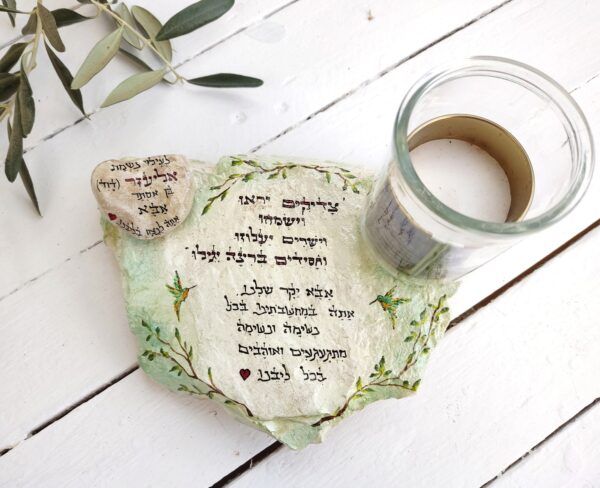 לעילוי נשמת
אליעזר (דוד)
בן אסתר
אבא
אתה לנצח בלבנו
צדיקים יראו
וישמחו
וישרים יעלוזו
וחסידים ברנה יגילו
אבא יקר שלנו.
אתה במחשבתינו בכל
נשימה ונשימה
מתגעגעים ואוהבים
בכל ליבנו